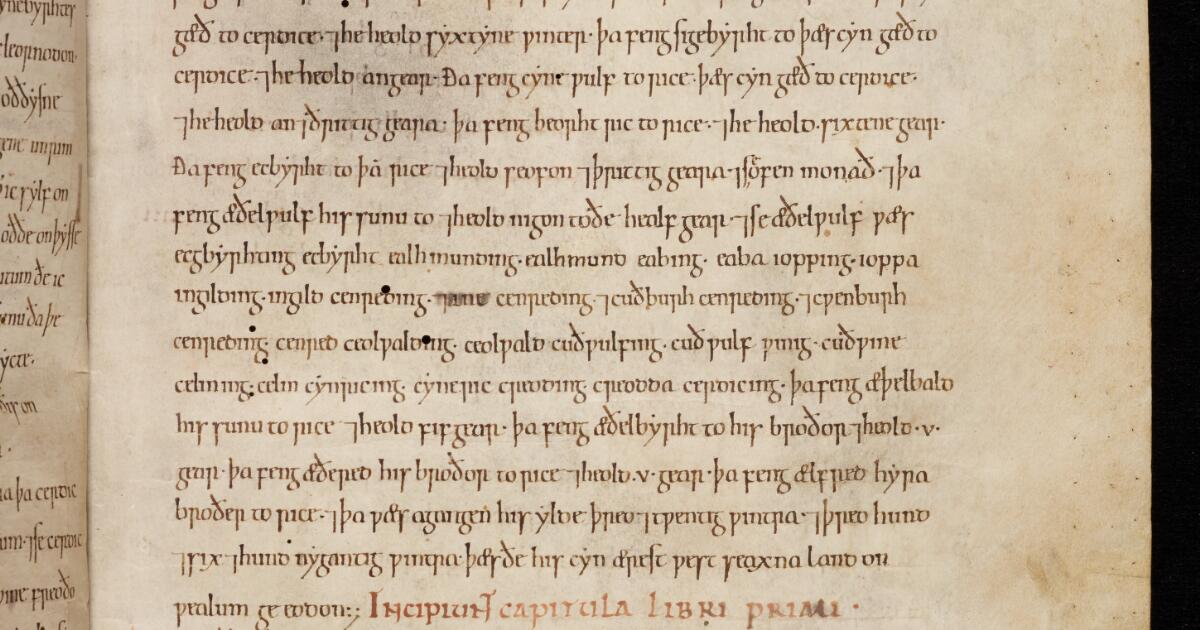 nebyrhtes
gæð to cerdice· ⁊ he heold syxtyne ƿinter· þa feng sigebyrht to þæs cyn gæð to
leornodon·
cerdice· ⁊ he heold an gear· Ða feng cyneƿulf to rice· þæs cyn gæð to cerdice·
oððysne
⁊ he heold an ⁊ ðrittig geara· þa feng beorht ric to rice· ⁊ he heold· sixtene gear·
urum
Ða feng ecbyrht to þā rice ⁊ heold seofon ⁊ þrittig geara· ⁊ sofen monað· ⁊ þa
ic sylf on
feng æðelƿulf his sunu to ⁊ heold nigon toðe healf gear· ⁊ se æðelƿulf ƿæs
oððe on þysse
ecgbyrhting ecbyrht ealhmunding· ealhmund eabing· eaba iopping· ioppa
ðe ic
ingilding· ingild cenreding· cenreding· ⁊ cuðburh cenreding· ⁊ cƿenburh
cenreding· cenred ceolƿalding· ceolƿald cuðƿulfing· cuðƿulf ƿing· cuðƿine
celining· celin cynricing· cyneric creoding· creodda cerdicing· þa feng æþelbald
his sunu to rice ⁊ heold fif gear· þa feng æðelbyrht to his broðor ⁊ heold ·v·
gear· þa feng æðered his broðor to rice ⁊ heold ·v· gear· þa feng ælfred hyra
þa cerdic
broðer to rice· ⁊ þa ƿæs agangen his ylde þreo ⁊ tƿentig ƿintra· ⁊ þreo hund
⁊ se cerdic
⁊ six ⁊ hund nygantig ƿintra· þæs ðe his cyn ærest ƿest seaxna land on
ƿealum ge eodon· Incipiunt capitula libri primi·